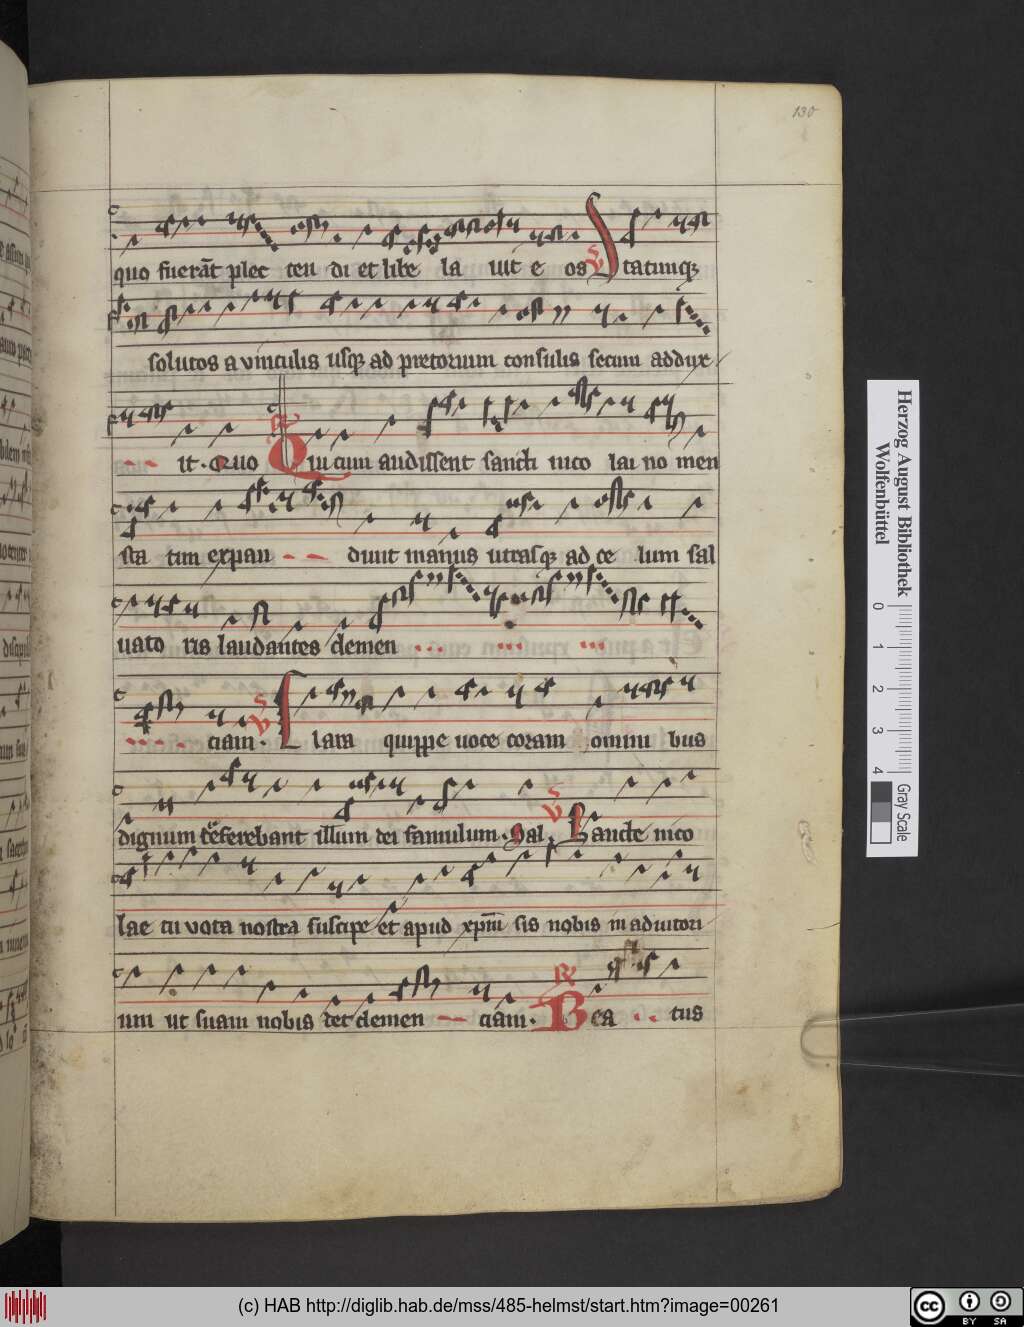 130
quo fuerāt plec ten di et libe la uit e os V Statimqꝫ
solutos a vinculis usqꝫ ad pretorium consulis secum addux
it. Quo R Qui cum audissent sancti nico lai no men
sta tim expan dunt manus utrasqꝫ ad ce lum sal
uato ris laudantes clemen
ciam. V Clara quippe uoce coram omni bus
dignum te referebant illum dei famulum. Sal. V Sancte nico
lae tu vota nostra suscipe et apud xpm̄ sis nobis in adiutori
um ut suam nobis det clemen ciam. R Bea tus
Herzog August Bibliothek
Wolfenbüttel
0 1 2 3 4
Gray Scale
(c) HAB http://diglib.hab.de/mss/485-helmst/start.htm?image=00261
cc BY SA